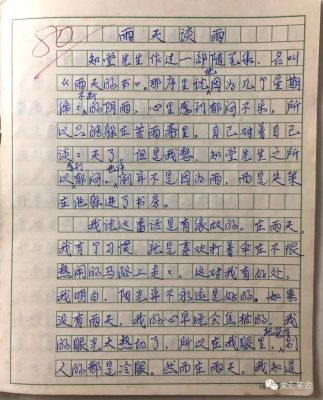 80
雨天谈雨
知堂先生作过一部随笔集,名叫
《雨天的书》,那序里说他因为几个星期
不断的阴雨,心里感到郁闷不乐,所
以只能躲在苦雨斋里,自己对着自己
谈谈天了。但是我想,知堂先生之所
以感到郁闷,也许倒并不是因为雨,而是失策
在他躲进了书房。
我说这番话是有缘故的。在雨天,
我有个习惯,就是喜欢打着伞在不很
热闹的马路上走走,这对我有好处,
我明白,阳光并不永远是好的。如果
没有雨天,我的心早晚会焦枯的,我
的眼光太热切了,所以在我眼里,别
人的都是冷眼。然而在雨天,我知道
文汇笔会